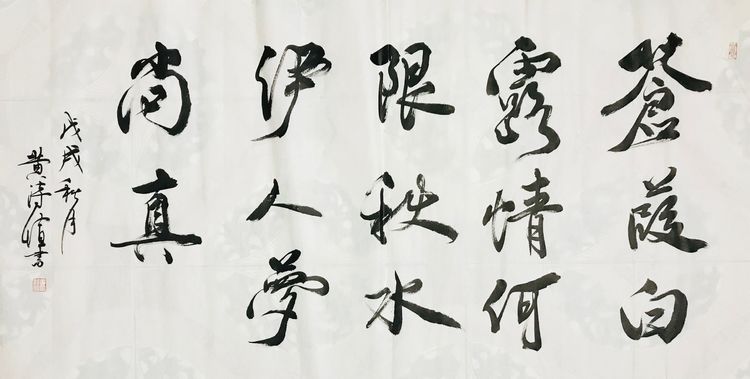 蒼葭白
露情何
限秋水
伊人夢
尚真
戊戌秋月
黄書